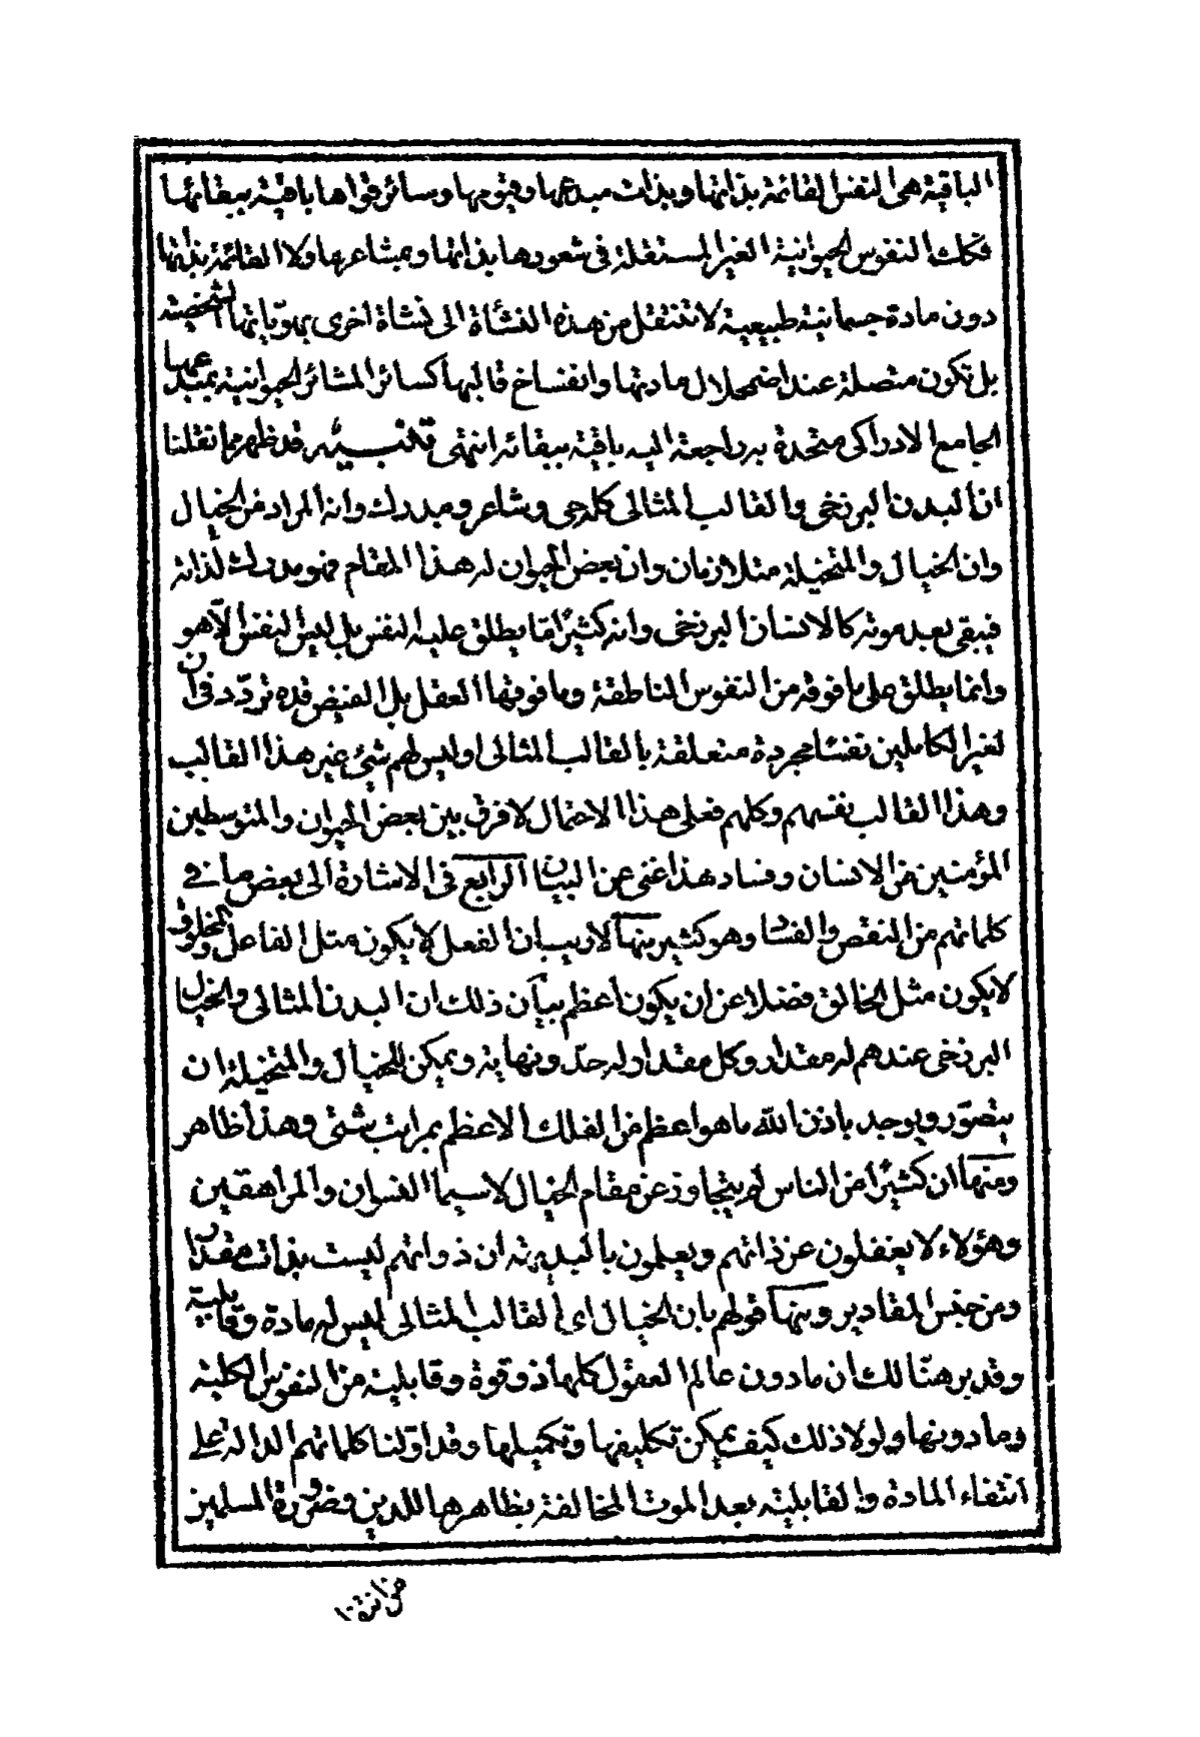 الباقية هى النفس القائمة بذاتها وبذات مبدعها وقيومها وسائر قواها باقية ببقائها
فكك النفوس الحيوانية الغير المستقلة فى شعورها بذاتها وبمشاعرها ولا القائمة بذاتها
دون مادة جسمانية طبيعية لا تنتقل من هذه النشأة الى نشاة اخرى بهوياتها الشخصية
بل تكون متصلة عند اضمحلال مادتها وانفساخ قالبها كسائر المشائر الحيوانية بمبدعها
الجامع الادراكى متحدة به راجعة اليه باقية ببقائه انتهى تنبيه قد ظهر مما نقلنا
ان البدن البرزخى والقالب المثالى كله حى وشاعر ومدرك وانه المراد من الخيال
وان الخيال والمتخيلة متلازمان وان بعض الحيوان له هذا المقام فهو مدرك لذاته
فيبقى بعد موته كالانسان البرزخى وانه كثيرًا ما يطلق عليه النفس بل ليس النفس الّا هو
وانما يطلق على ما فوقه من النفوس الناطقة وما فوقها العقل بل الفيض قده تردّد فى ان
لغير الكاملين نفسًا مجردة متعلقة بالقالب المثالى اوليس لهم شئ غير هذا القالب
وهذا القالب نفسهم وكلهم فعلى هذا الاحتمال لا فرق بين بعض الحيوان والمتوسطين
المؤمنين من الانسان وفساد هذا غنى عن البيان الرابع فى الاشارة الى بعض ما فى
كلماتهم من النقص والفسا وهو كثير منها لا ريب ان الفعل لا يكون مثل الفاعل والمخلوق
لا يكون مثل الخالق فضلا عن ان يكون اعظم بيان ذلك ان البدن المثالى والخيال
البرزخى عندهم له مقدار وكل مقدار له حدّ ونهاية ويمكن للخيال والمتخيلة ان
يتصوّر ويوجد باذن الله ما هو اعظم من الفلك الاعظم بمراتب شتى وهذا ظاهر
ومنها ان كثيرًا من الناس لم يتجاوز عن مقام الخيال لا سيما النسوان والمراهقين
وهؤلاء لا يغفلون عن ذاتهم ويعلمون بالبديهة ان ذواتهم ليست بذات مقدار
ومن جنس المقادير ومنها قولهم بان الخيال اى القالب المثالى ليس له مادة وقابلية
وقد برهنّا لك ان ما دون عالم العقول كلها ذو قوة وقابلية من النفوس الكلية
وما دونها ولولا ذلك كيف يمكن تكليفها وتكميلها وقد اوّلنا كلماتهم الدالة على
انتفاء المادة والقابلية بعد الموت المخالفة بظاهرها للدين وضرورة المسلمين